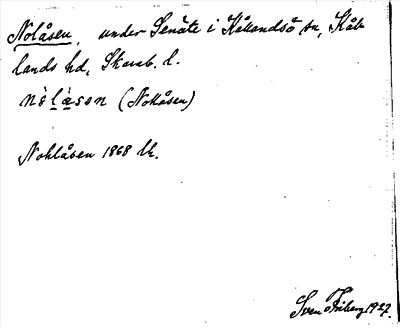 Nolåsen, under Senäte i Kållandsö sn, Kål-
lands hd, Skarab. l.
nòlå̀sən (Nollåsen)
Nohlåsen 1868 lk.
Sven Friberg 1927.